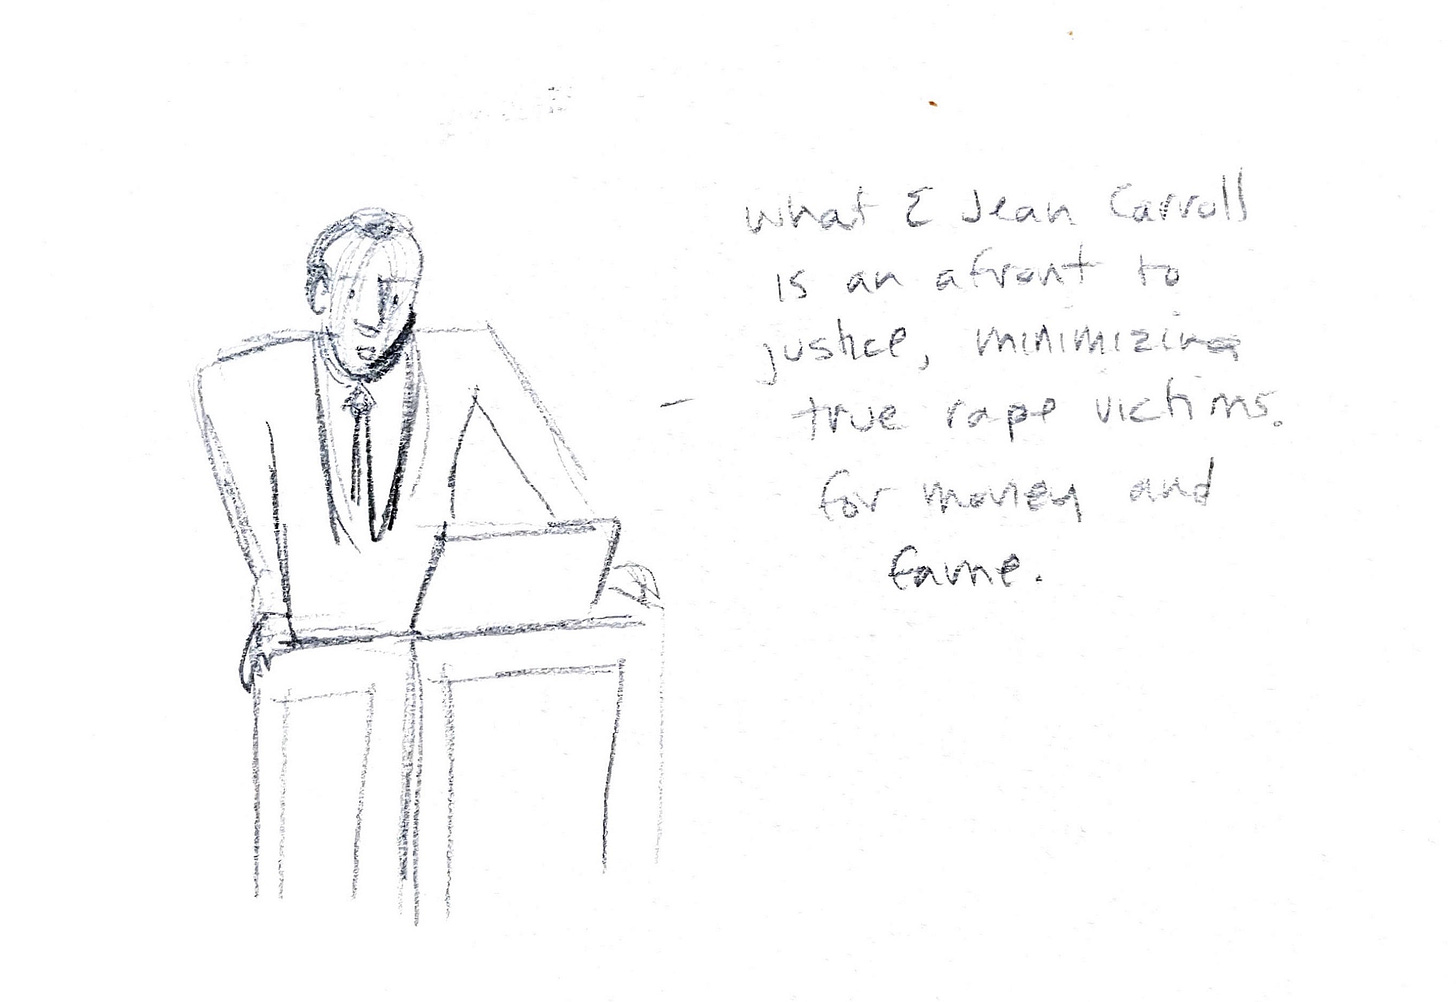 what E Jean Carroll
is an afront to
justice, minimizing
true rape victims.
for money and
fame.